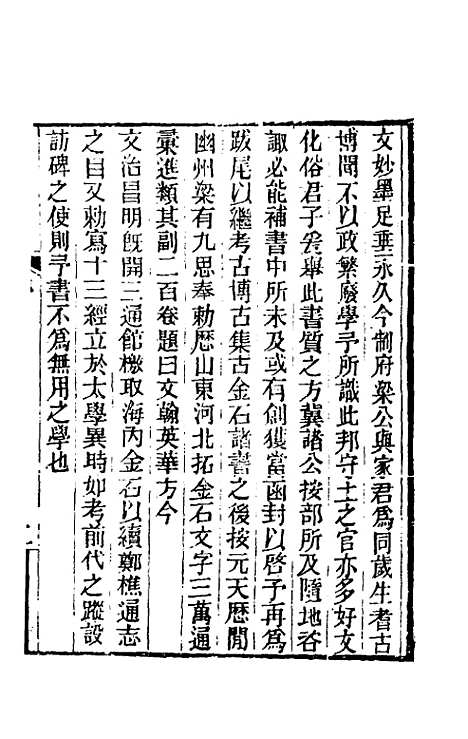 文妙墨足垂永久今制府梁公與家君爲同歲生耆古
博聞不以政繁廢學予所識此邦守土之官亦多好文
化俗君子爰舉此書質之方冀諸公按部所及隨地咨
諏必能補書中所未及或有創獲當函封以啓予再爲
跋尾以繼考古博古集古金石諸書之後按元天曆閒
幽州梁有九思奉勅歷山東河北拓金石文字三萬通
彙進類其副二百卷題曰文翰英華方今
文治昌明旣開三通館檄取海內金石以續鄭樵通志
之目又勅寫十三經立於太學異時如考前代之蹤設
訪碑之使則予書不爲無用之學也